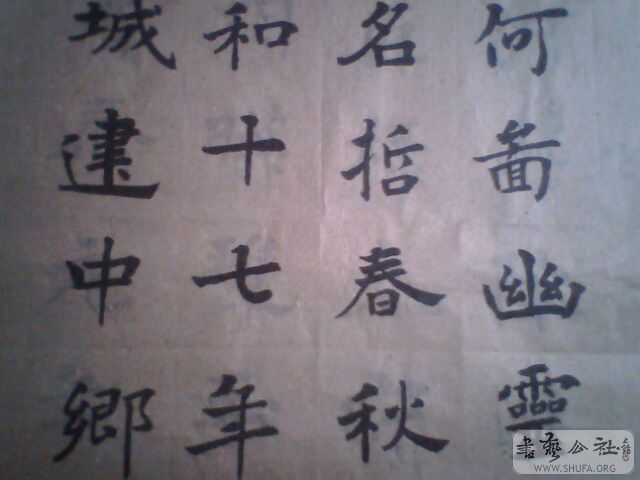 何啚幽靈
名哲春秋
和十七年
城建中鄉
書藝公社
WWW.SHUFA.ORG